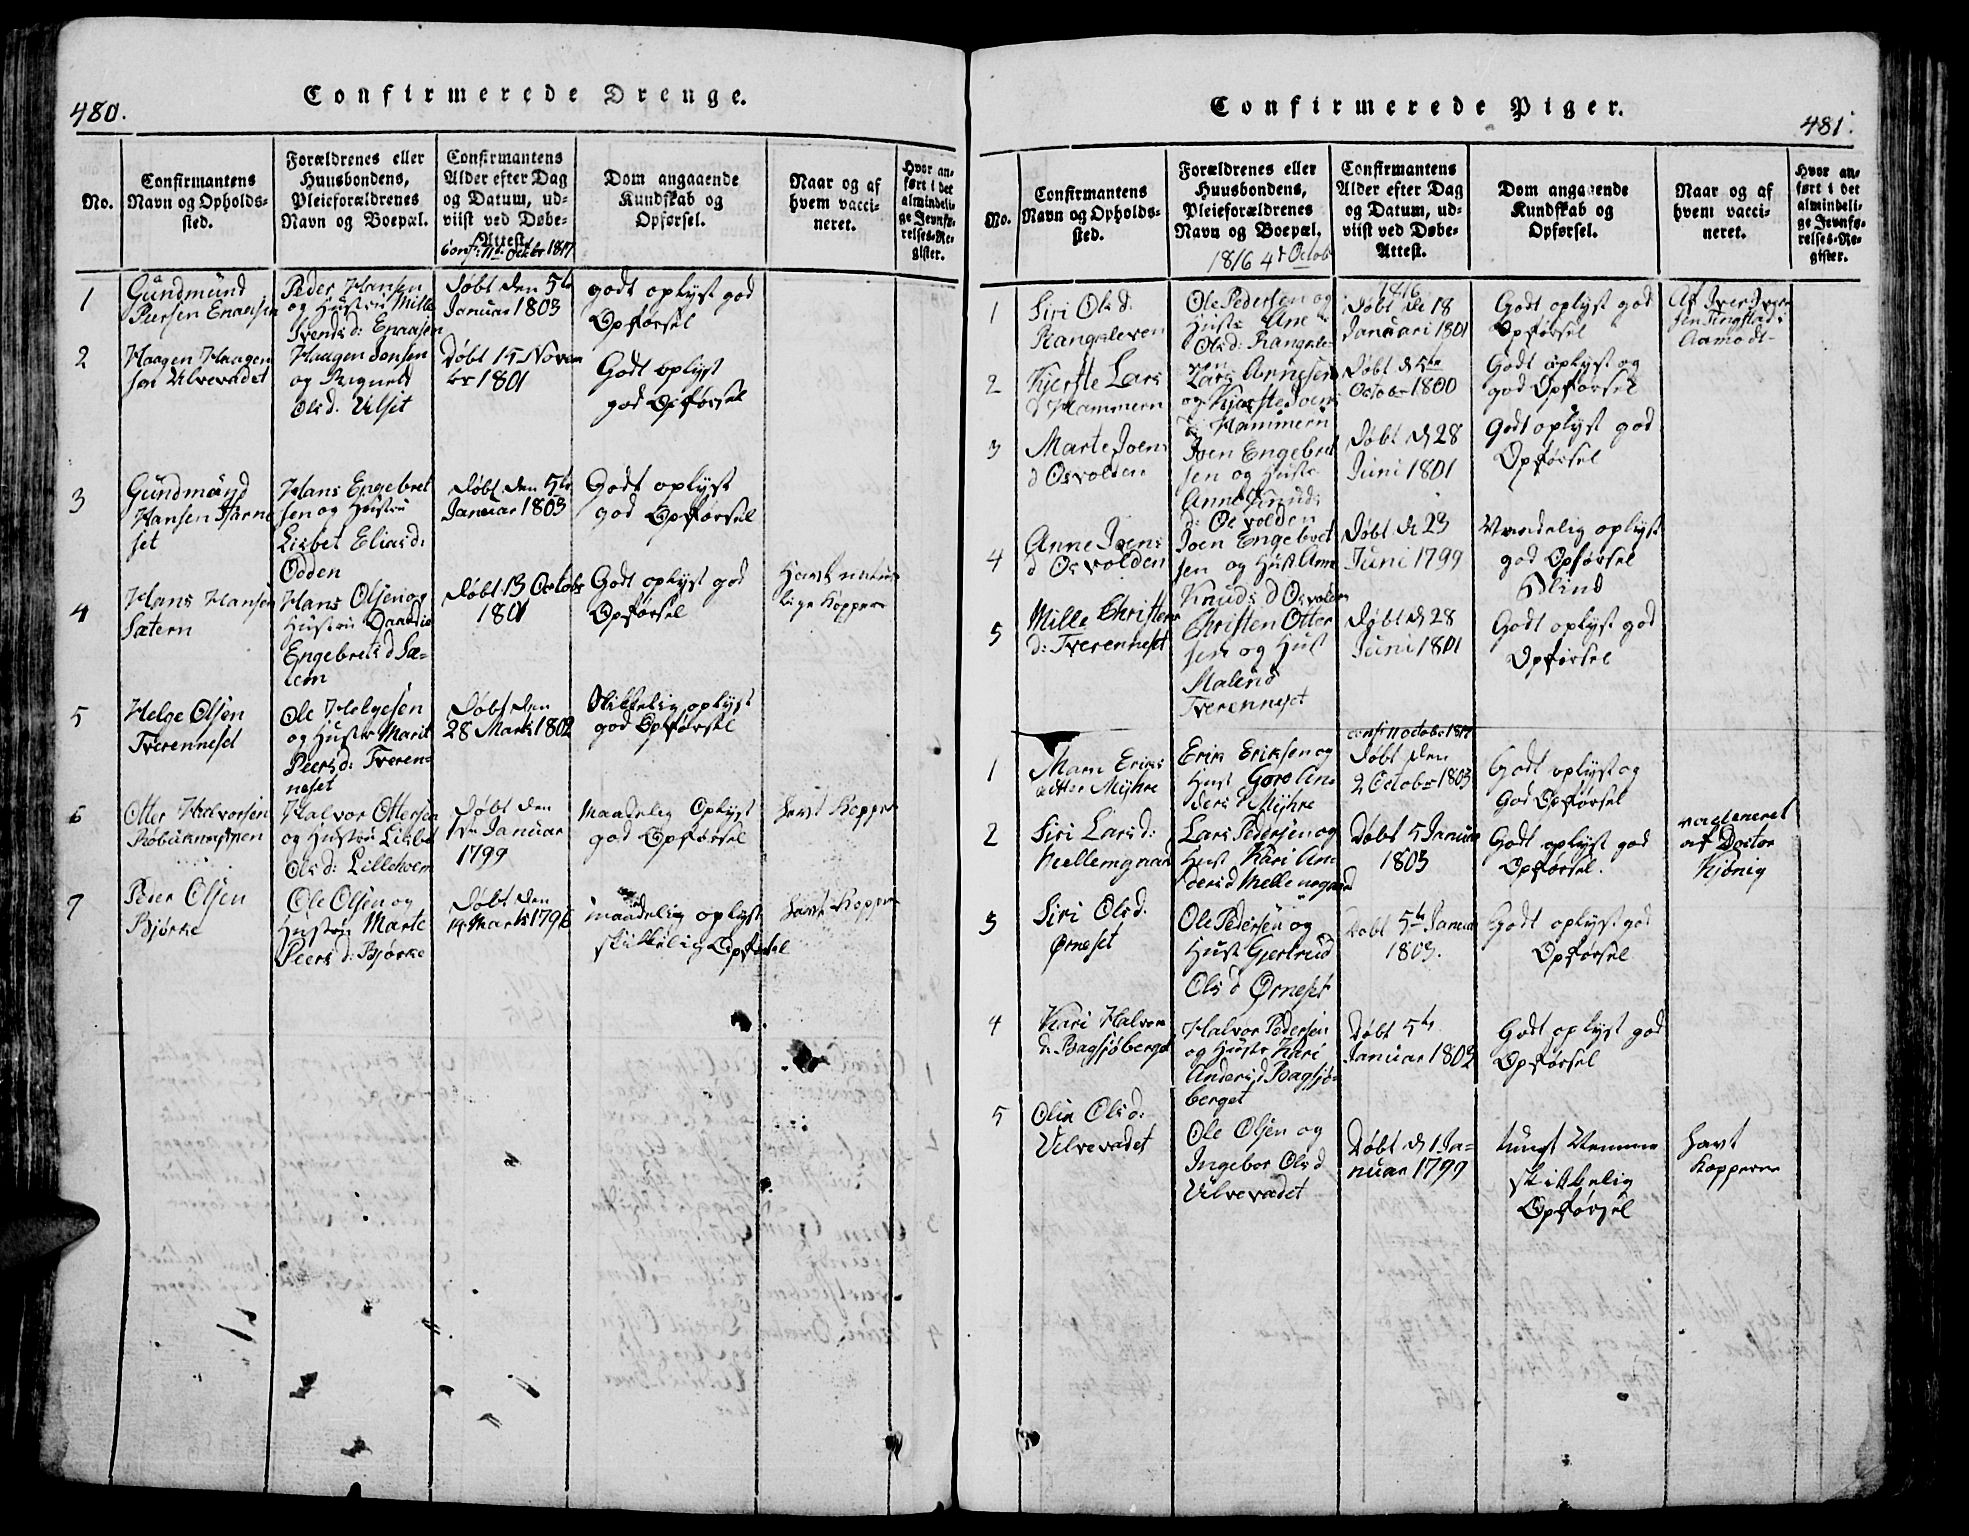 480.
Confirmerede Drenge.
No.
Confirmantens
Navn og Opholds-
sted.
Forældrenes eller
Huusbondens,
Pleieforældrenes
Navn og Boepæl.
Confirmantens
Alder efter Dag
og Datum, ud-
viist ved Døbe-
Attest.
Dom angaaende
Kundskab og
Opførsel.
Naar og af
hvem vacci-
neret.
Hvor an-
ført i det
almindeli-
ge Jevnfø-
relses-Re-
gister.
1817
1
Gundmund
Peersen
Peder Hansen
og Hustru Mille
Døbt den 5te
Januar 1803
godt oplyst god
Opførsel
2
Haagen Haagen
sen Ulvevadet
Haagen Jonsen
og
Olsd. Ulset
Døbt 15 Novem
br 1801
Godt oplyst
god Opførsel
3
Gundmund
Hansen
set
Hans Engebret
sen og Hustru
Lisbet Eliasd:
Odden
Døbt den 5te
Januar 1803
Godt oplyst
god Opførsel
4
Hans Hansen
Sætern
Hans Olsen og
Hustru
Engebretsd Sæ-
tern
Døbt 13 Octobr
1801
Godt oplyst god
Opførsel
Havt natur
lige Kopper
5
Helge Olsen
Tverenneset
Ole Helgesen
og Hustr Marit
Peersd: Tveren-
neset
Døbt den
28 Marts 1802
oplyst
god Opførsel
6
Otter Halvorsen
Halvor Ottersen
og Hustru Lisbet
Olsd: Lilleholm
Døbt den
Januar
1799
Maadelig Oplyst
god Opførsel
havt Kopper
7
Peder Olsen
Bjørke
Ole Olsen og
Hustru Marte
Peersd: Bjørke
Døbt den
14 Marts 1796
maadelig oplyst
skikkelig Opførsel
havt Kopper
481.
Confirmerede Piger.
No.
Confirmantens
Navn og Opholds-
sted.
Forældrenes eller
Huusbondens,
Pleieforældrenes
Navn og Boepæl.
1816 4d Octob
Confirmantens
Alder efter Dag
og Datum, ud-
viist ved Døbe-
Attest.
1816
Dom angaaende
Kundskab og
Opførsel.
Naar og af
hvem vacci-
neret.
Hvor an-
ført i det
almindeli-
ge Jevnfø-
relses-Re-
gister.
1
Siri Olsd:
Ole Pedersen og
Hustr Ane
Olsd:
Døbt de 18
Januari 1801
Godt oplyst god
Opførsel
Af Iver Iver
sen
Aamodt
2
Kjerste Lars
d Hammern
Lars Arnesen
og Kjerste Joens
d: Hammern
Døbt d 5te
October 1800
Godt oplyst og
god Opførsel
3
Marte Joens
d Osvolden
Joen Engebret
sen og Hustr
Anne Knuds
d: Osvolden
Døbt d 28
Juni 1801
Godt oplyst god
Opførsel
4
Anne Joens
d Osvolden
Joen Engebret
sen og Hust Ann
Knuds d Osvolden
Døbt d 23
Juni 1799
oplyst
god Opførsel
5
Mille Christens
d: Tverenneset
Christen Otter
sen og Hust
Malend
Tverenneset
Døbt d 28
Juni 1801
Godt oplyst god
Opførsel
conf: 11 octobr 1817
1
Mari Eriks
datter Myhre
Erik Eriksen og
Hust Goro An
ders d Myhre
Døbt den
2 October 1803
Godt oplyst og
God Opførsel
2
Siri Larsd:
Mellemgaard
Lars Pedersen og
Hust Kari An
dersd Mellemgaard
Døbt 5 Januar
1803
Godt oplyst god
Opførsel.
vaccineret
af Doctor
3
Siri Olsd.
Ørneset
Ole Pedersen og
Hust Gjertrud
Olsd Ørneset
Døbt 5te Januar
1803.
Godt oplyst god
Opførsel
4
Kari Halvors
d: Bagsjøberget
Halvor Pedersen
og Hustr Kari
Andersd Bagsjø-
berget
Døbt 5te
Januar 1803
Godt oplyst god
Opførsel
5
Olia Olsd:
Ulvevadet
Ole Olsen og
Ingebor Olsd
Ulvevadet
Døbt d 1 Ja-
nuar 1799
tungt Nemme
skikkelig
Opførsel
havt
Kopperne